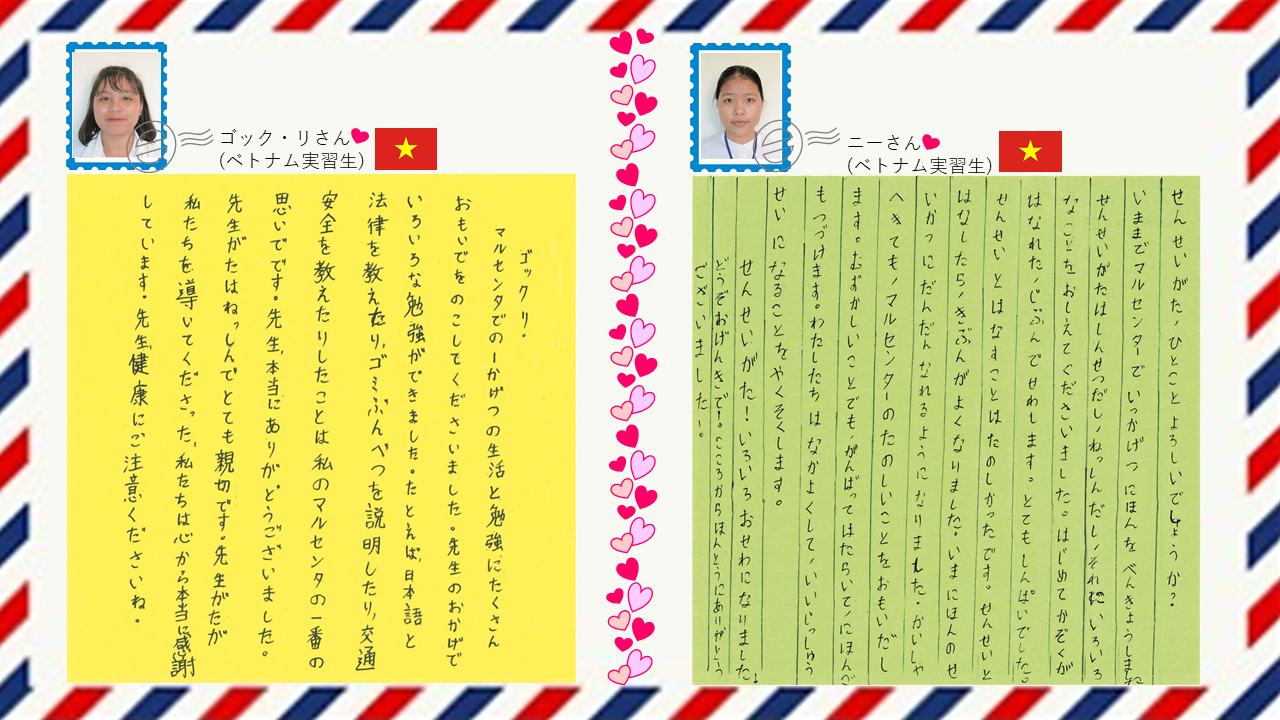 ゴック・リさん
(ベトナム実習生)
ゴックリ.
マルセンタでの一かげつの生活と勉強にたくさん
おもいでをのこしてくださいました。先生のおかげで
いろいろな勉強ができました。たとえば、日本語と
法律を教えたり、ゴミぶんべつを説明したり、交通
安全を教えたりしたことは私のマルセンタの一番の
思いでです。先生、本当にありがどうございました。
先生がたはねっしんでとても親切です。先生がたが
私たちを導いてくださった、私たちは心から本当に感謝
しています。先生、健康にご注意くださいね。
ニーさん
(ベトナム実習生)
せんせいがた、ひとこと よろしいでしょうか?
いままでマルセンターで いっかげつ にほんを べんきょうしました
せんせいがたはしんせつだし、ねっしんだし、それに いろいろ
なことを おしえてくださいました。はじめてかぞくが
はなれた、じぶんでせわします。とてもしんぱいでした。
せんせい とはなすことは たのしかったです。せんせいと
はなしたら、きぶんがよくなりました。いまにほんのせ
いかつ にだんだん なれるようになりました.かいしゃ
へきても、マルセンターのたのしいことをおもいだし
ます。むずかしいことでも、がんばってはたらいて、にほんご
もつづけます。わたしたちは なかよくして、いいじっしゅう
せい になることを やくそくします。
せんせいがた!いろいろ おせわになりました.
どうぞおげんきで!。こころからほんとうにありがとう
ございました!。